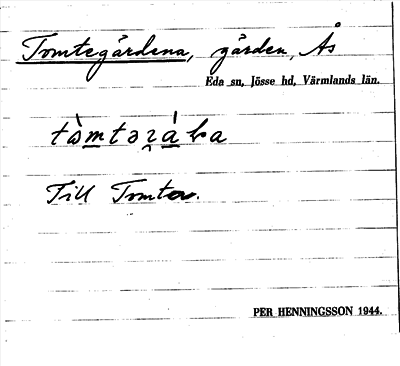 Tomtegårdena, gården, Ås
Eda sn, Jösse hd, Värmlands län.
Till Tomten.
PER HENNINGSSON 1944.